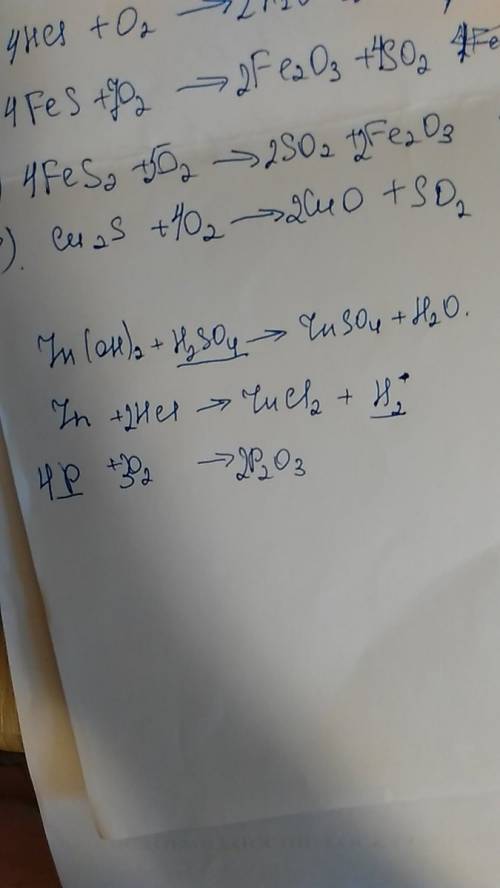 4HCl + O₂ → 2
4FeS + 7O₂ → 2Fe₂O₃ + 4SO₂
4FeS₂ + 5O₂ → 2SO₂ + 2Fe₂O₃
). Cu₂S + 4O₂ → 2CuO + SO₂
Zn(OH)₂ + H₂SO₄ → ZnSO₄ + H₂O.
Zn + 2HCl → ZnCl₂ + H₂
4P + 3O₂ → 2P₂O₃